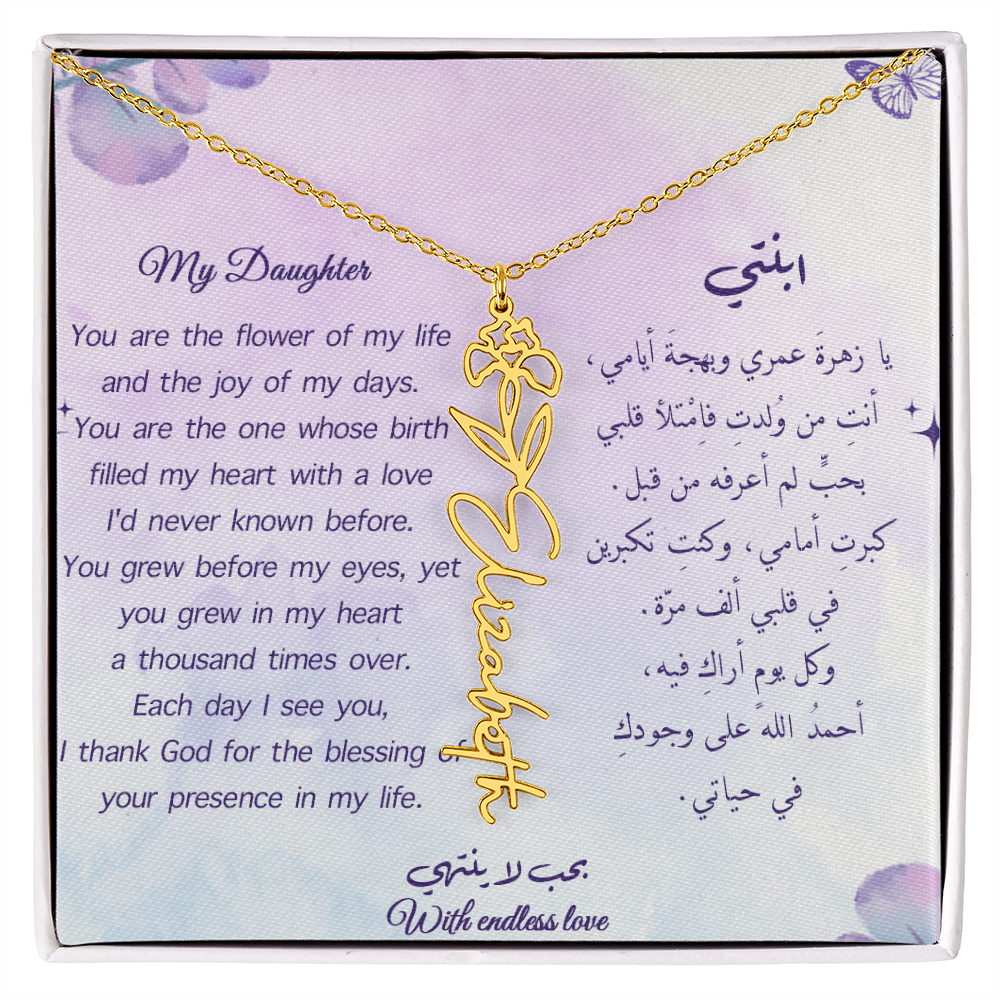 My Daughter
You are the flower of my life
and the joy of my days.
You are the one whose birth
filled my heart with a love
I'd never known before.
You grew before my eyes, yet
you grew in my heart
a thousand times over.
Each day I see you,
I thank God for the blessing of
your presence in my life.
Elizabeth
ابنتي
يا زهرةَ عمري وبهجةَ أيامي،
أنتِ من وُلدتِ فامْتلأ قلبي
بحبٍّ لم أعرفه من قبل.
كبرتِ أمامي، وكنتِ تكبرين
في قلبي ألف مرّة.
وكل يومٍ أراكِ فيه،
أحمدُ اللهَ على وجودكِ
في حياتي.
بحب لا ينتهي
With endless love